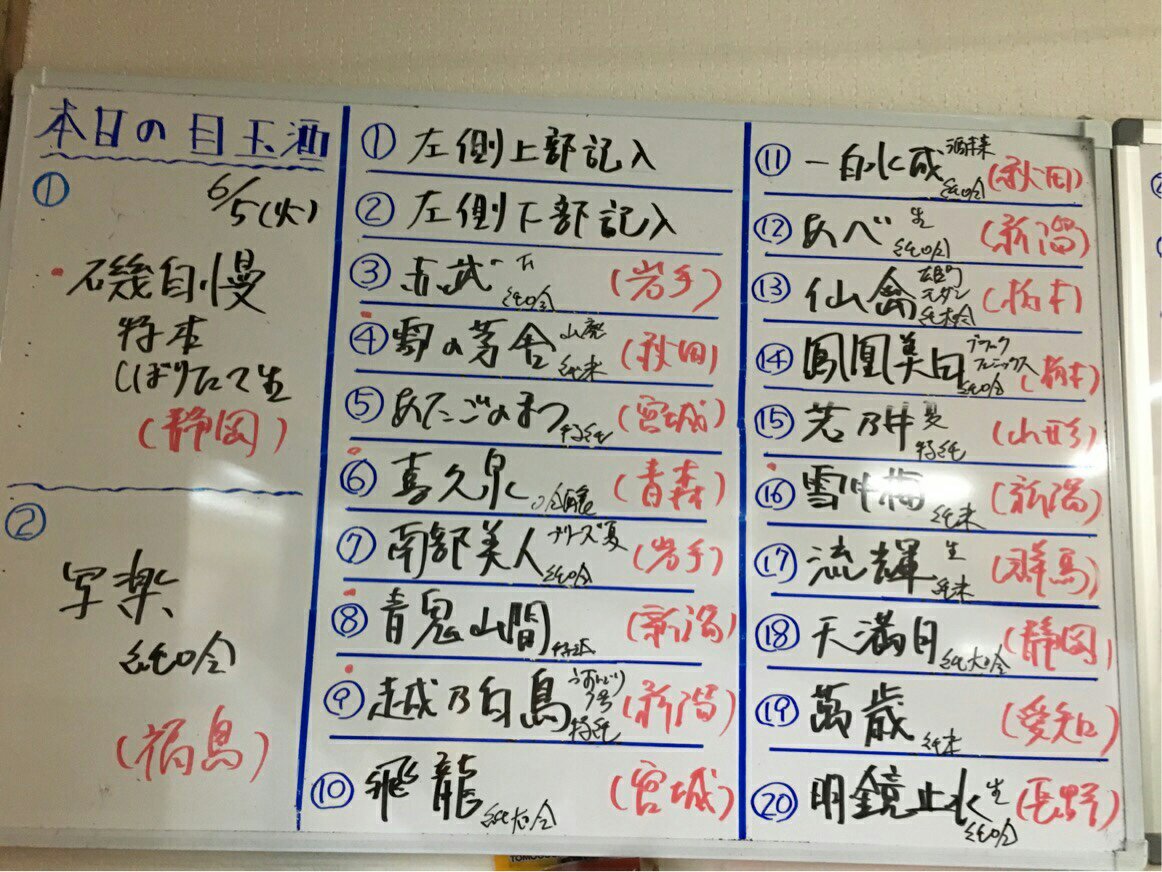 本日の目玉酒
① 6/5(火)
磯自慢
特本
しぼりたて生
(静岡)
②
写楽
純吟
(福島)
① 左側上部記入
② 左側下部記入
③ 赤武 純吟 (岩手)
④ 雪の茅舎 山廃 純米 (秋田)
⑤ あたごのまつ 特純 (宮城)
⑥ 喜久泉 吟醸 (青森)
⑦ 南部美人 夏 純吟 (岩手)
⑧ 青鬼山間 特純 (新潟)
⑨ 越乃白鳥 特純 (新潟)
⑩ 飛龍 純大吟 (宮城)
⑪ 一白水成 純吟 (秋田)
⑫ あべ 生 純吟 (新潟)
⑬ 仙禽 雄町 モダン (栃木)
⑭ 鳳凰美田 ブラック フェニックス 純吟 (栃木)
⑮ 若乃井 夏 特純 (山形)
⑯ 雪中梅 純米 (新潟)
⑰ 流輝 生 純米 (群馬)
⑱ 天満月 純大吟 (静岡)
⑲ 萬歳 純米 (愛知)
⑳ 明鏡止水 生 純吟 (長野)